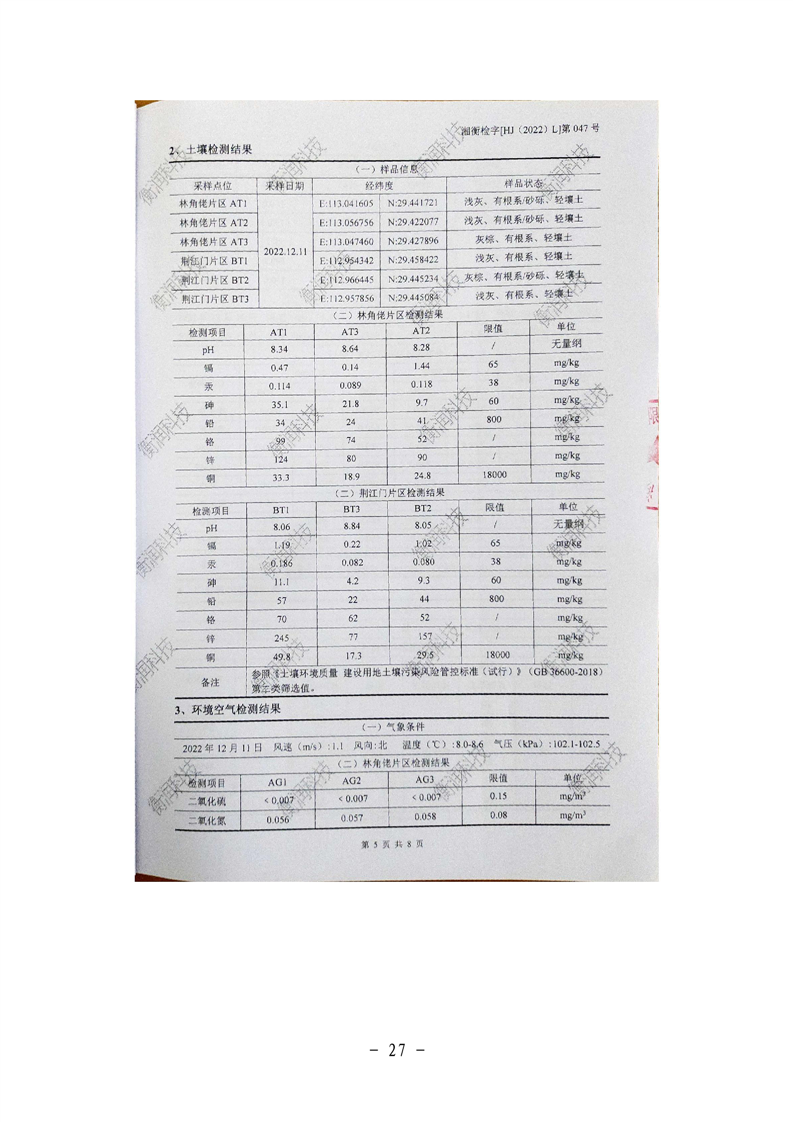 湘衡检字[HJ（2022）L]第 047 号
2、土壤检测结果
（一）样品信息
采样点位 采样日期 经纬度 样品状态
林角佬片区 AT1 E:113.041605 N:29.441721 浅灰、有根系/砂砾、轻壤土
林角佬片区 AT2 E:113.056756 N:29.422077 浅灰、有根系/砂砾、轻壤土
林角佬片区 AT3 E:113.047460 N:29.427896 灰棕、有根系、轻壤土
2022.12.11
荆江门片区 BT1 E:112.954342 N:29.458422 浅灰、有根系、轻壤土
荆江门片区 BT2 E:112.966445 N:29.445234 灰棕、有根系/砂砾、轻壤土
荆江门片区 BT3 E:112.957856 N:29.445084 浅灰、有根系、轻壤土
（二）林角佬片区检测结果
检测项目 AT1 AT3 AT2 限值 单位
pH 8.34 8.64 8.28 / 无量纲
镉 0.47 0.14 1.44 65 mg/kg
汞 0.114 0.089 0.118 38 mg/kg
砷 35.1 21.8 9.7 60 mg/kg
铅 34 24 41 800 mg/kg
铬 99 74 52 / mg/kg
锌 124 80 90 / mg/kg
铜 33.3 18.9 24.8 18000 mg/kg
（二）荆江门片区检测结果
检测项目 BT1 BT3 BT2 限值 单位
pH 8.06 8.84 8.05 / 无量纲
镉 1.19 0.22 1.02 65 mg/kg
汞 0.186 0.082 0.080 38 mg/kg
砷 11.1 4.2 9.3 60 mg/kg
铅 57 22 44 800 mg/kg
铬 70 62 52 / mg/kg
锌 245 77 157 / mg/kg
铜 49.8 17.3 29.5 18000 mg/kg
备注 参照《土壤环境质量 建设用地土壤污染风险管控标准（试行）》（GB 36600-2018）
第二类筛选值。
3、环境空气检测结果
（一）气象条件
2022 年 12 月 11 日 风速（m/s）: 1.1 风向: 北 温度（℃）: 8.0-8.6 气压（kPa）: 102.1-102.5
（二）林角佬片区检测结果
检测项目 AG1 AG2 AG3 限值 单位
二氧化硫 < 0.007 < 0.007 < 0.007 0.15 mg/m³
二氧化氮 0.056 0.057 0.058 0.08 mg/m³
第 5 页 共 8 页
衡润科技
- 27 -